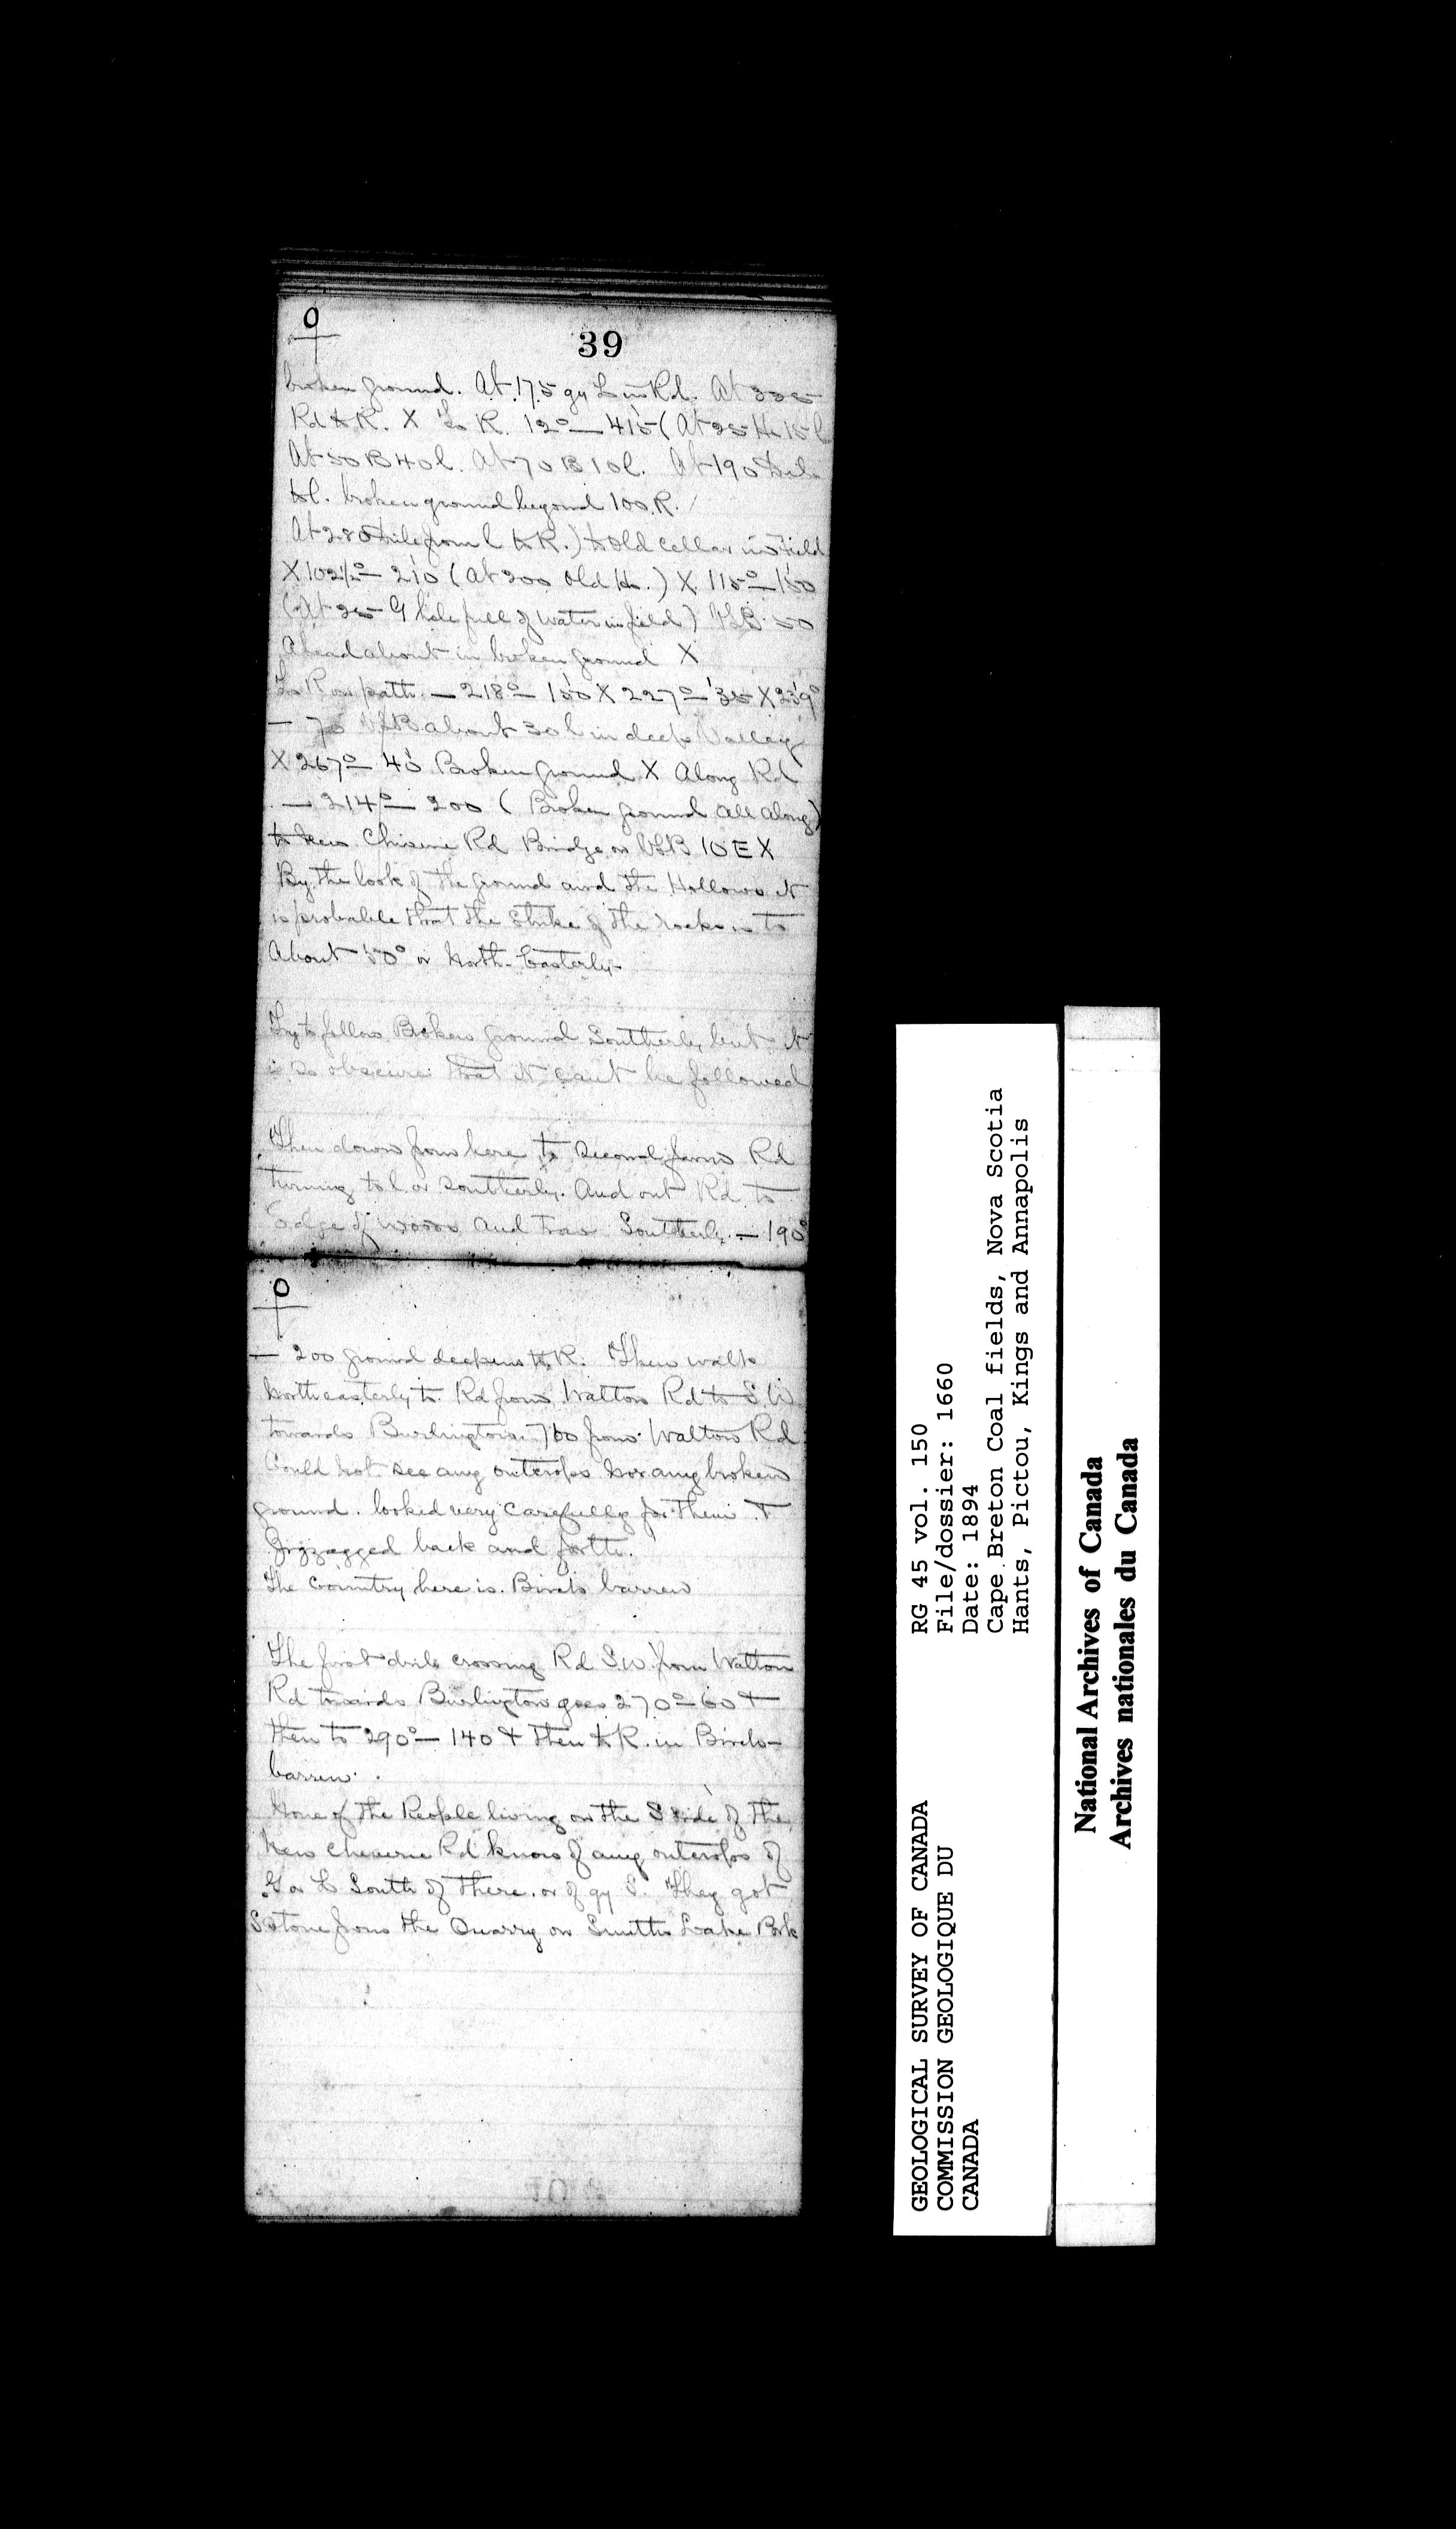 39
broken ground. At 175 gy L in Rd. At 335
Rd to R. X To R. 12° — 415 (At 25 Ho 15 l
At 50 B 40 l. At 70 B 10 l. At 190
to l. broken ground beyond 100 R.
At 280 from l to R.) to old cellar in field
X 102½° — 210 (At 200 old Ho.) X 115° — 150
(At 25 G hole full of water in field) 50
Ahead about in broken ground X
To R on path. — 218° — 150 X 227° — 35 X 239°
— 70 about 30 l in deep Valley
X 267° — 40 Broken ground X Along Rd
— 214° — 200 (Broken ground all along)
to New Chiverie Rd Bridge on 10 E X
By the look of the ground and the Hollows it
is probable that the strike of the rocks is to
About 50° or North-Easterly

Try to follow Broken ground Southerly but it
is so obscure that it can't be followed

Then down from here to second farm Rd
turning to l. or southerly. And out Rd to
Edge of woods and Trav Southerly. — 190°
— 200 ground deepens to R. Then walk
Northeasterly to Rd from Walton Rd to S.W
towards Burlington 700 from Walton Rd
Could not see any outcrops nor any broken
ground. looked very carefully for them +
Zigzagged back and forth.
The Country here is Birch barren

The first crossing Rd S.W. from Walton
Rd towards Burlington goes 270° — 60 +
then to 290° — 140 + then to R. in Birch-
barren.
None of the People living on the S side of the
New Cheverie Rd know of any outcrops of
G or L South of there. or of gy S. They got
Stone from the Quarry on Smiths Lake Bk
GEOLOGICAL SURVEY OF CANADA
COMMISSION GEOLOGIQUE DU
CANADA
RG 45 vol. 150
File/dossier: 1660
Date: 1894
Cape Breton Coal fields, Nova Scotia
Hants, Pictou, Kings and Annapolis
National Archives of Canada
Archives nationales du Canada